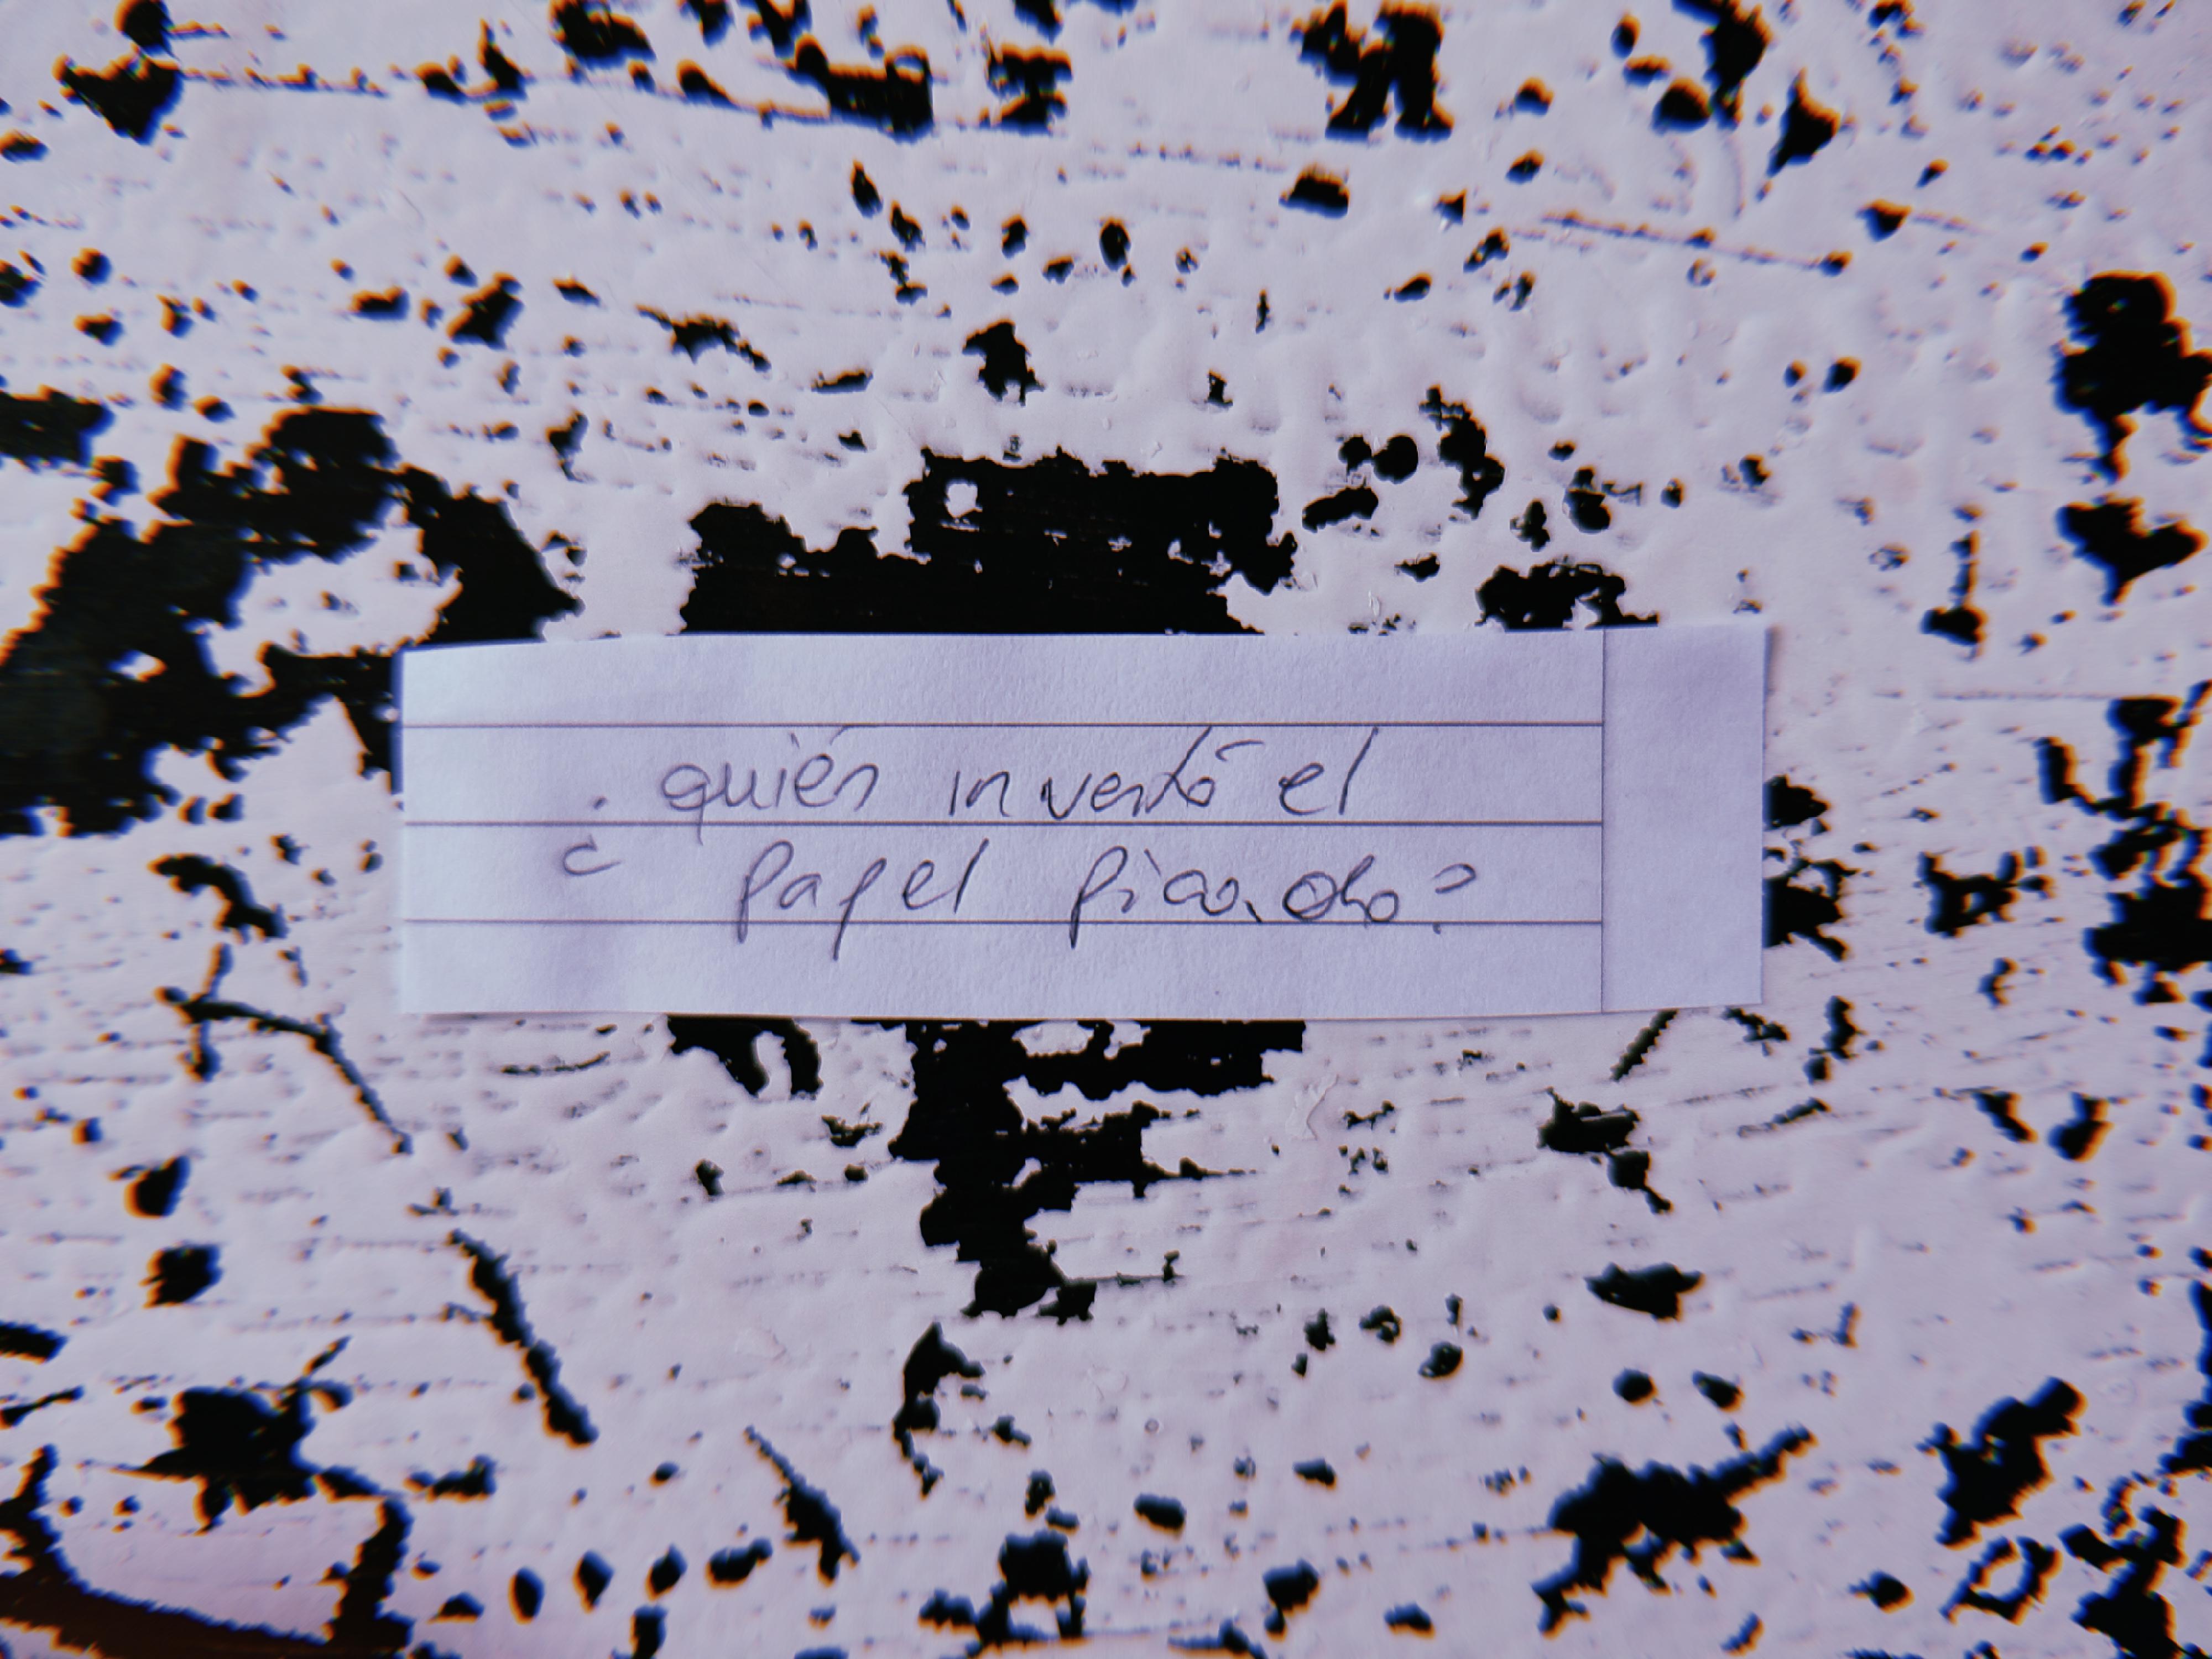 ¿quién inventó el
papel picado?